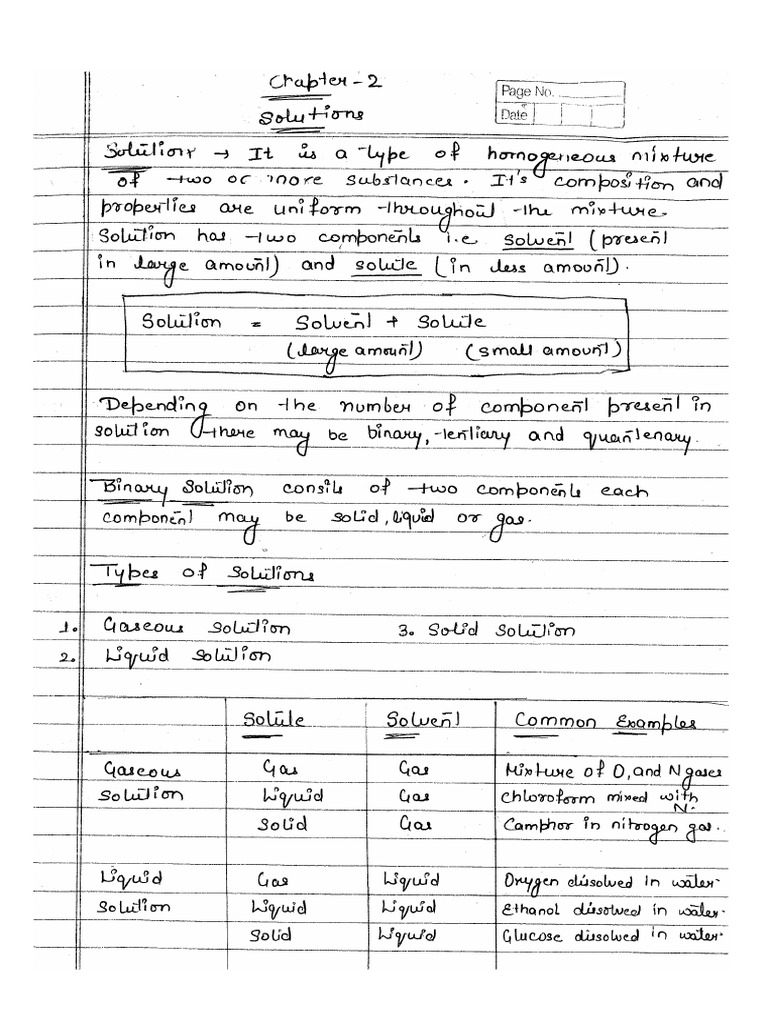 Chapter-2
Page No.
Solutions
Date
Solution → It is a type of homogeneous mixture
of two or more substances. It's composition and
properties are uniform throughout the mixture.
Solution has two components i.e solvent (present
in large amount) and solute (in less amount).
Solution = Solvent + Solute
(large amount) (small amount)
Depending on the number of component present in
solution there may be binary, tertiary and quartenary.
Binary Solution consits of two components each
component may be solid, liquid or gas.
Types of Solutions
1. Gaseous Solution 3. Solid Solution
2. Liquid Solution
Solute Solvent Common Examples
Gaseous Gas Gas Mixture of O, and N gases
Solution Liquid Gas Chloroform mixed with
N.
Solid Gas Camphor in nitrogen gas.
Liquid Gas Liquid Oxygen dissolved in water.
Solution Liquid Liquid Ethanol dissolved in water.
Solid Liquid Glucose dissolved in water.